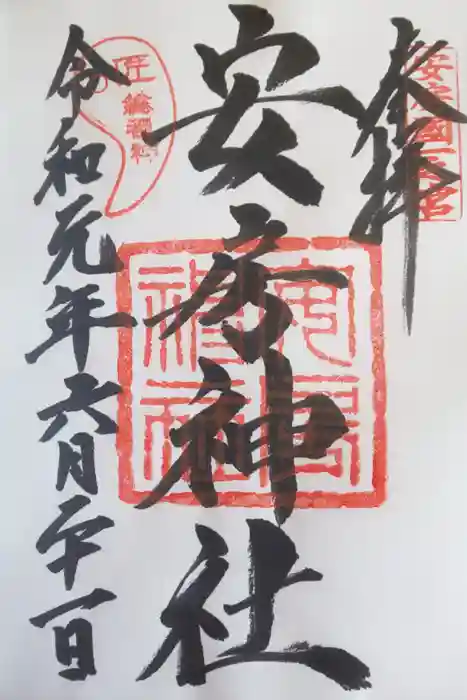 奉拝
安房國一之宮
安房神社
安房神社
令和元年六月二十一日
匠